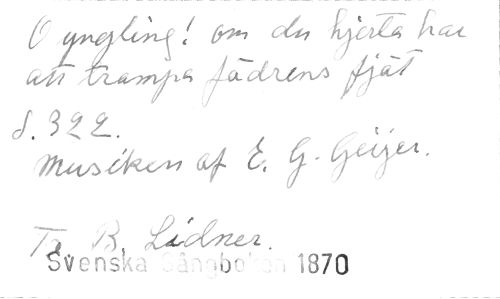 O yngling! om du hjerta har
att trampa fädrens fjät
s. 322.
Musiken af E. G. Geijer.
T. B. Lidner.
Svenska Sångboken 1870